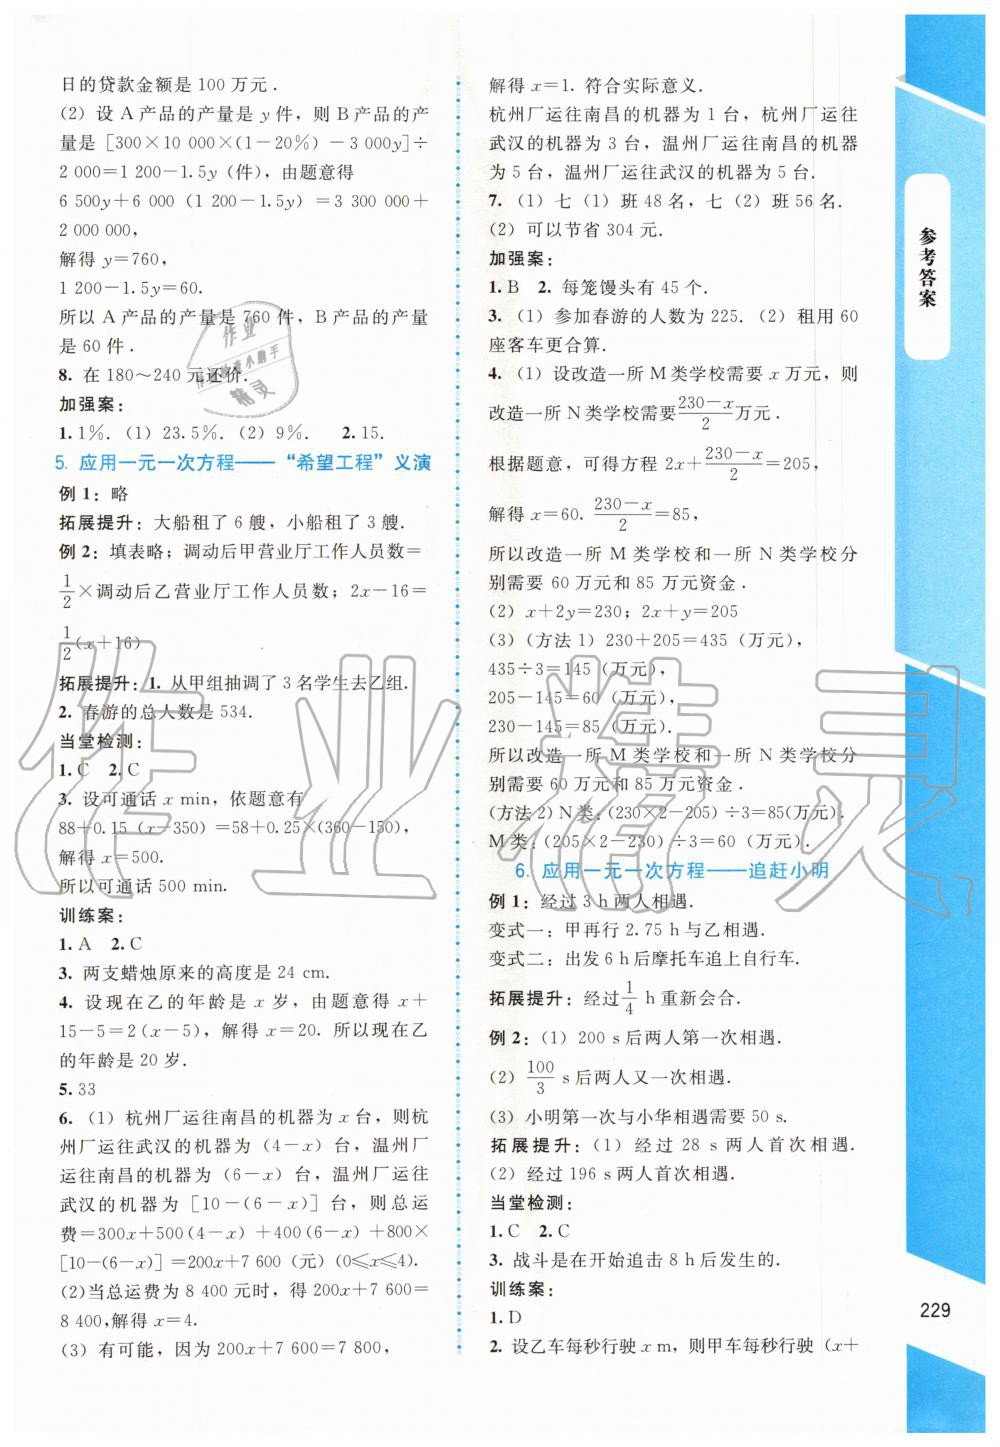 日的贷款金额是 100 万元.
(2) 设 A 产品的产量是 y 件, 则 B 产品的产
量是 [300×10 000×(1-20%)-3 000y]÷
2 000=1 200-1.5y (件), 由题意得
6 500y+6 000 (1 200-1.5y)=3 300 000+
2 000 000,
解得 y=760,
1 200-1.5y=60.
所以 A 产品的产量是 760 件, B 产品的产量
是 60 件.
8. 在 180~240 元还价.
加强案:
1. 1%. (1) 23.5%. (2) 9%. 2. 15.
5. 应用一元一次方程——“希望工程”义演
例 1: 略
拓展提升: 大船租了 6 艘, 小船租了 3 艘.
例 2: 填表略; 调动后甲营业厅工作人员数=
1/2×调动后乙营业厅工作人员数; 2x-16=
1/2(x+16)
拓展提升: 1. 从甲组抽调了 3 名学生去乙组.
2. 春游的总人数是 534.
当堂检测:
1. C 2. C
3. 设可通话 x min, 依题意有
88+0.15 (x-350)=58+0.25×(360-150),
解得 x=500.
所以可通话 500 min.
训练案:
1. A 2. C
3. 两支蜡烛原来的高度是 24 cm.
4. 设现在乙的年龄是 x 岁, 由题意得 x+
15-5=2 (x-5), 解得 x=20. 所以现在乙
的年龄是 20 岁.
5. 33
6. (1) 杭州厂运往南昌的机器为 x 台, 则杭
州厂运往武汉的机器为 (4-x) 台, 温州厂
运往南昌的机器为 (6-x) 台, 温州厂运往
武汉的机器为 [10-(6-x)] 台, 则总运
费=300x+500(4-x)+400(6-x)+800×
[10-(6-x)]=200x+7 600 (元) (0≤x≤4).
(2)当总运费为 8 400 元时, 得 200x+7 600=
8 400,解得 x=4.
(3) 有可能, 因为 200x+7 600=7 800,
解得 x=1. 符合实际意义.
杭州厂运往南昌的机器为 1 台, 杭州厂运往
武汉的机器为 3 台, 温州厂运往南昌的机器
为 5 台, 温州厂运往武汉的机器为 5 台.
7. (1) 七 (1) 班 48 名, 七 (2) 班 56 名.
(2) 可以节省 304 元.
加强案:
1. B 2. 每笼馒头有 45 个.
3. (1) 参加春游的人数为 225. (2) 租用 60
座客车更合算.
4. (1) 设改造一所 M 类学校需要 x 万元, 则
改造一所 N 类学校需要(230-x)/2万元.
根据题意, 可得方程 2x+(230-x)/2=205,
解得 x=60. (230-x)/2=85,
所以改造一所 M 类学校和一所 N 类学校分
别需要 60 万元和 85 万元资金.
(2) x+2y=230; 2x+y=205
(3) (方法 1) 230+205=435 (万元),
435÷3=145 (万元),
205-145=60 (万元),
230-145=85 (万元).
所以改造一所 M 类学校和一所 N 类学校分
别需要 60 万元和 85 万元资金.
(方法 2) N类: (230×2-205)÷3=85 (万元).
M 类: (205×2-230)÷3=60 (万元).
6. 应用一元一次方程——追赶小明
例 1: 经过 3 h 两人相遇.
变式一: 甲再行 2.75 h 与乙相遇.
变式二: 出发 6 h 后摩托车追上自行车.
拓展提升: 经过1/4 h 重新会合.
例 2: (1) 200 s 后两人第一次相遇.
(2) 100/3 s 后两人又一次相遇.
(3) 小明第一次与小华相遇需要 50 s.
拓展提升: (1) 经过 28 s 两人首次相遇.
(2) 经过 196 s 两人首次相遇.
当堂检测:
1. C 2. C
3. 战斗是在开始追击 8 h 后发生的.
训练案:
1. D
2. 设乙车每秒行驶 x m, 则甲车每秒行驶 (x+
参考答案
229
作业精灵